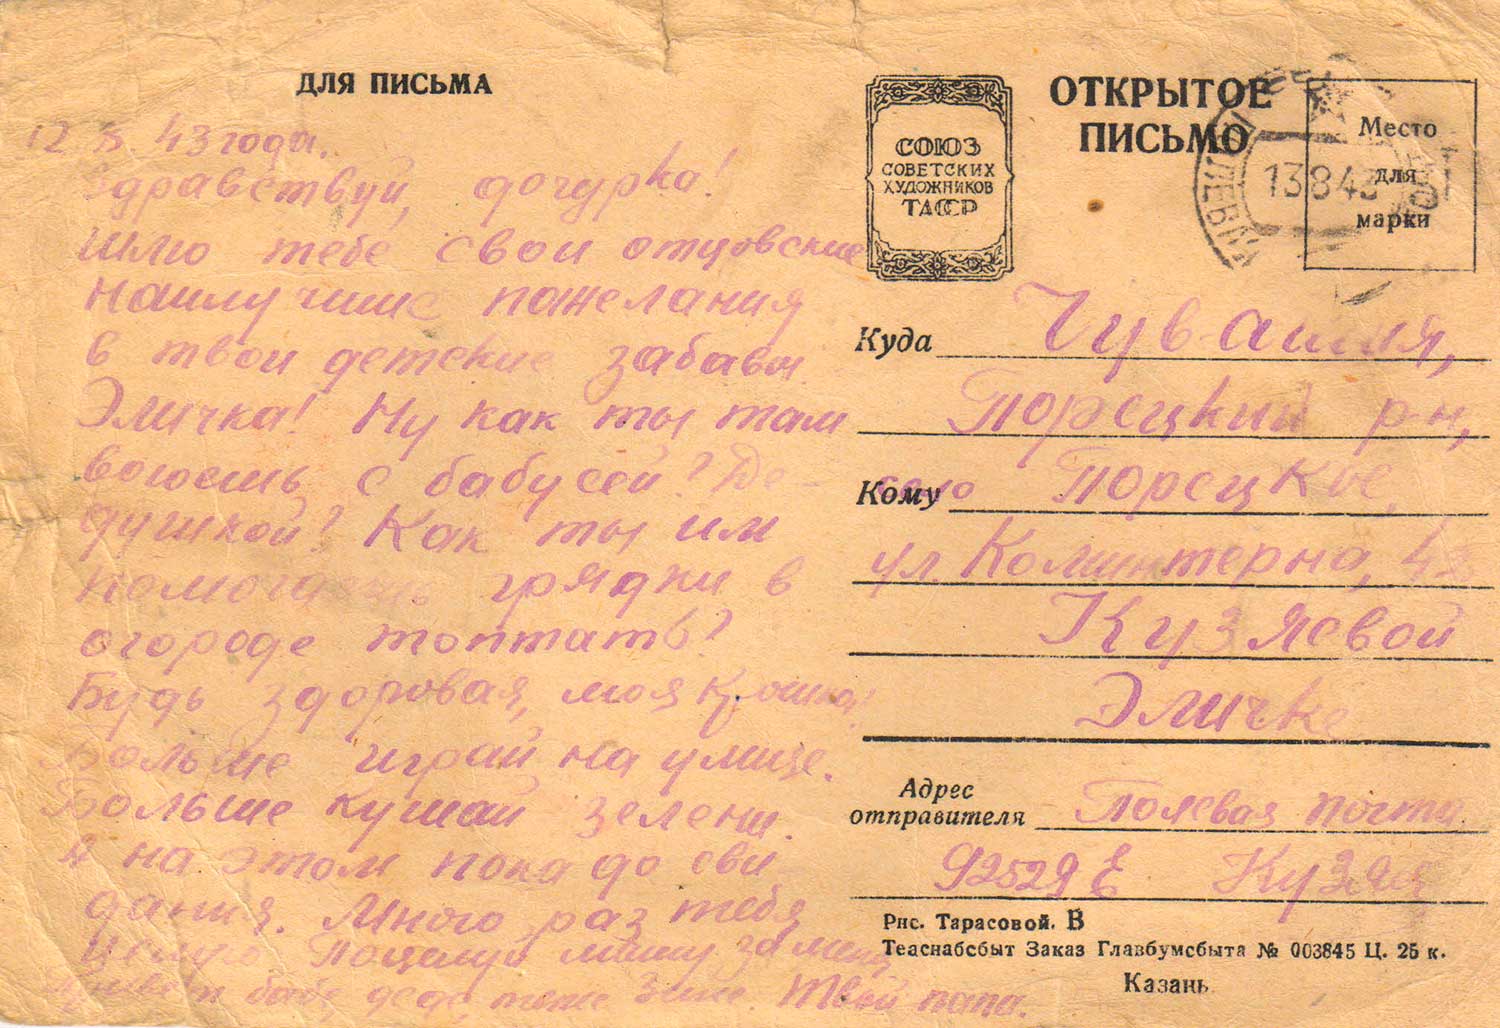 ДЛЯ ПИСЬМА
12 8. 43 года.
Здравствуй, дочурка!
Шлю тебе свои отцовские
наилучшие пожелания
в твои детские забавы.
Эличка! Ну как ты там
воюешь с бабусей? Де-
душкой? Как ты им
помогаешь грядки в
огороде топтать?
Будь здоровая, моя крошка!
Больше играй на улице.
Больше кушай зелени.
А на этом пока до сви
дания. Много раз тебя
целую. Поцелуй маму за меня,
Привет бабе, деде, тёте Зине. Твой папа.
СОЮЗ
СОВЕТСКИХ
ХУДОЖНИКОВ
ТАССР
ОТКРЫТОЕ
ПИСЬМО
Место
для
марки
13 8 43
Куда Чувашия,
Порецкий р-н,
Кому село Порецкое,
ул. Коминтерна,
Кузяевой
Эличке
Адрес
отправителя Полевая почта
92529 Е Кузяев
Рис. Тарасовой. В
Теаснабсбыт Заказ Главбумсбыта № 003845 Ц. 25 к.
Казань